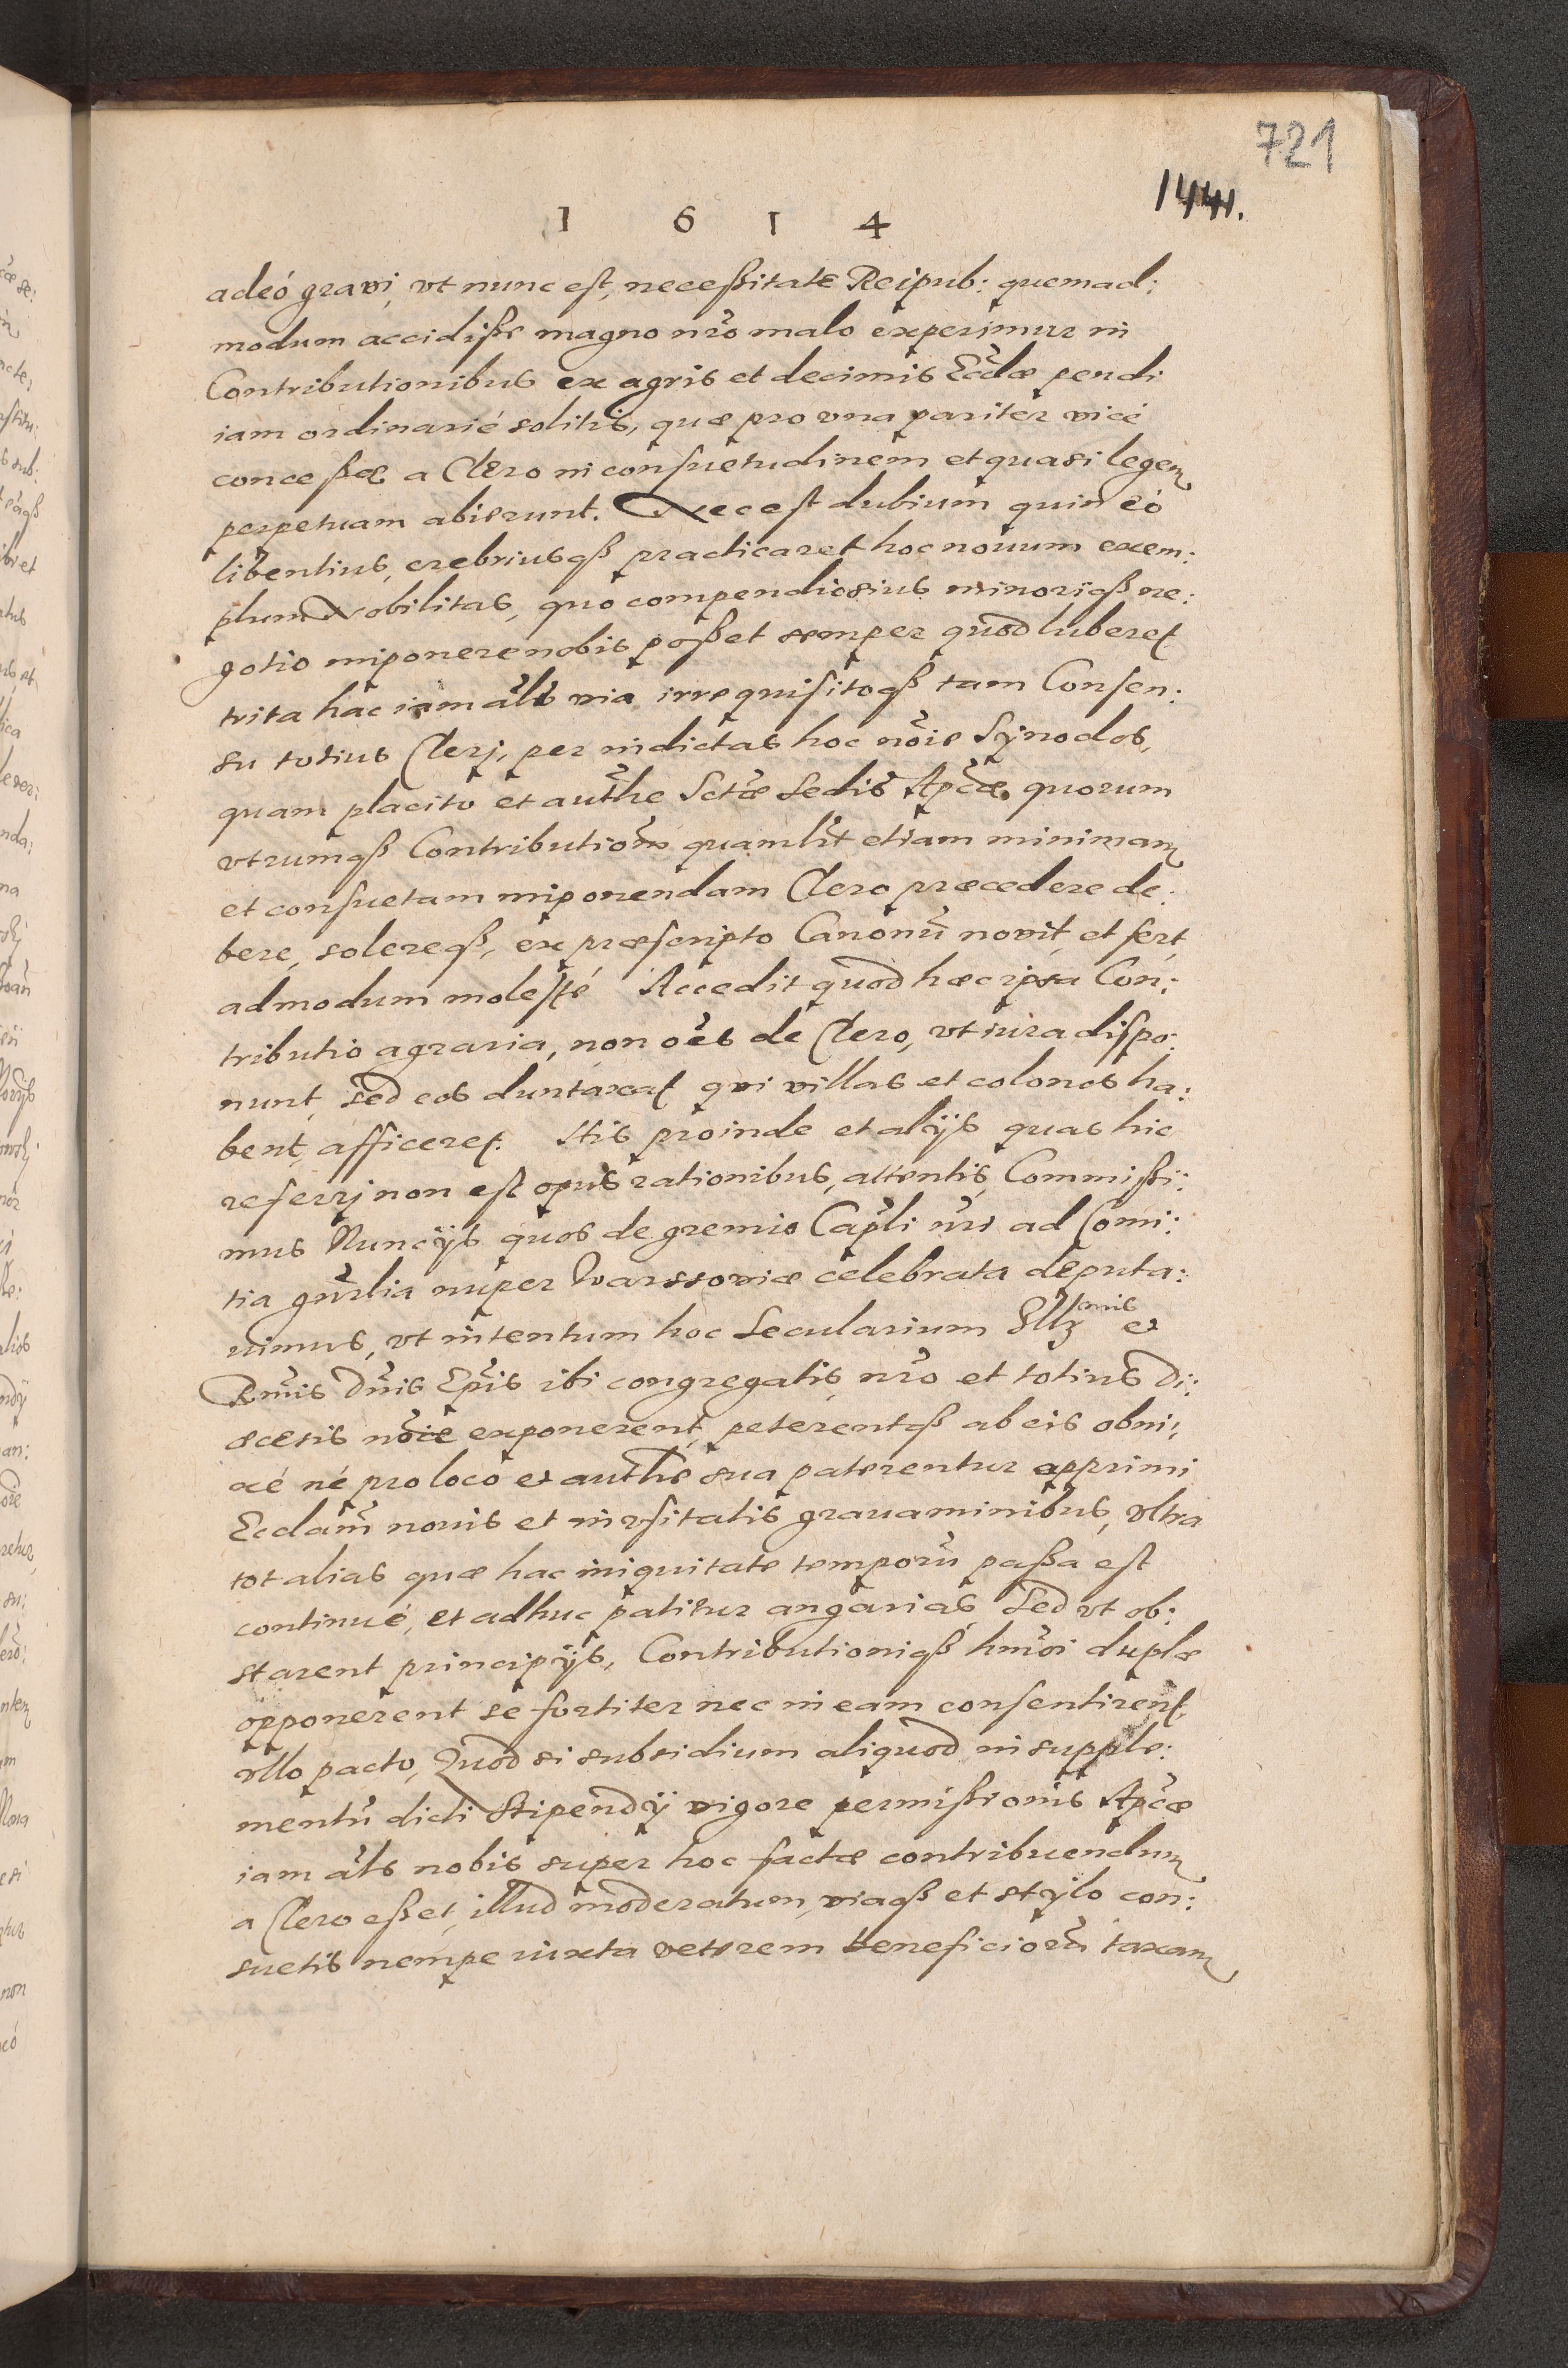 721
1441.
1 6 1 4
adeó gravi, vt nunc est, neceßitate Reipub: quemad:
modum accidiße magno nr̃o malo experimur in
Contributionibus ex agris et decimis Eccl̃æ pendi
iam ordinarié solitis, quæ pro vna pariter vicé
conceßæ a Clero in consuetudinem et quasi legem
perpetuam abierunt. Nec est dubium quin eó
libentius, crebriusqß practicaret hoc nouum exem:
plum Nobilitas, quo compendiosius minoriqß ne:
gotio imponere nobis poßet semper quod luberet
trita hac iam al̃s via irrequisitoqß tam Consen:
su totius Clerj, per indictas hoc no͠ie Sÿnodos,
quam placito et auth̃e Sctæ Sedis Apc̃æ, quorum
vtrumqß Contributio͠m quamlt̃ etiam minimam
et consuetam imponendam Clero præcedere de:
bere, solereqß, ex præscripto Canonũ novit, et fert
admodum molesté Accedit quod hæc ipsa Con:
tributio agraria, non o͠es de Clero, vt iura dispo:
nunt, sed eos duntaxat qui villas et colonos ha:
bent, afficeret. Itis proinde et alÿs quas hic
referrj non est opus rationibus, attentis, Commißi:
mus Nuncÿs quos de gremio Capl̃i nr̃i ad Comi:
tia gñrlia nuper Warssoviæ celebrata deputa:
uimus, vt intentum hoc Secularium Illmis et
Rmis Dñis Ep̃is ibi congregatis nr̃o et totius Di:
œcesis no͠ie exponerent, peterentqß ab eis obni:
xé né pro loco et auth̃e sua paterentur opprimi
Eccla͠m nouis et invsitatis grauaminibus, vltra
tot alias quæ hac iniquitate temporũ paßa est
continué, et adhuc patitur angarias Sed vt ob:
starent principÿs, Contributioniqß hmo͠i duplæ
opponerent se fortiter nec in eam consentirent
vllo pacto, Quod si subsidium aliquod in supple:
mentũ dicti Stipendÿ vigore permißionis Apc̃æ
iam al̃s nobis super hoc factæ contribuendum
a Clero eßet, illud moderatum, viaqß et stÿlo con:
suetis nempe iuxta veterem beneficiorũ taxam